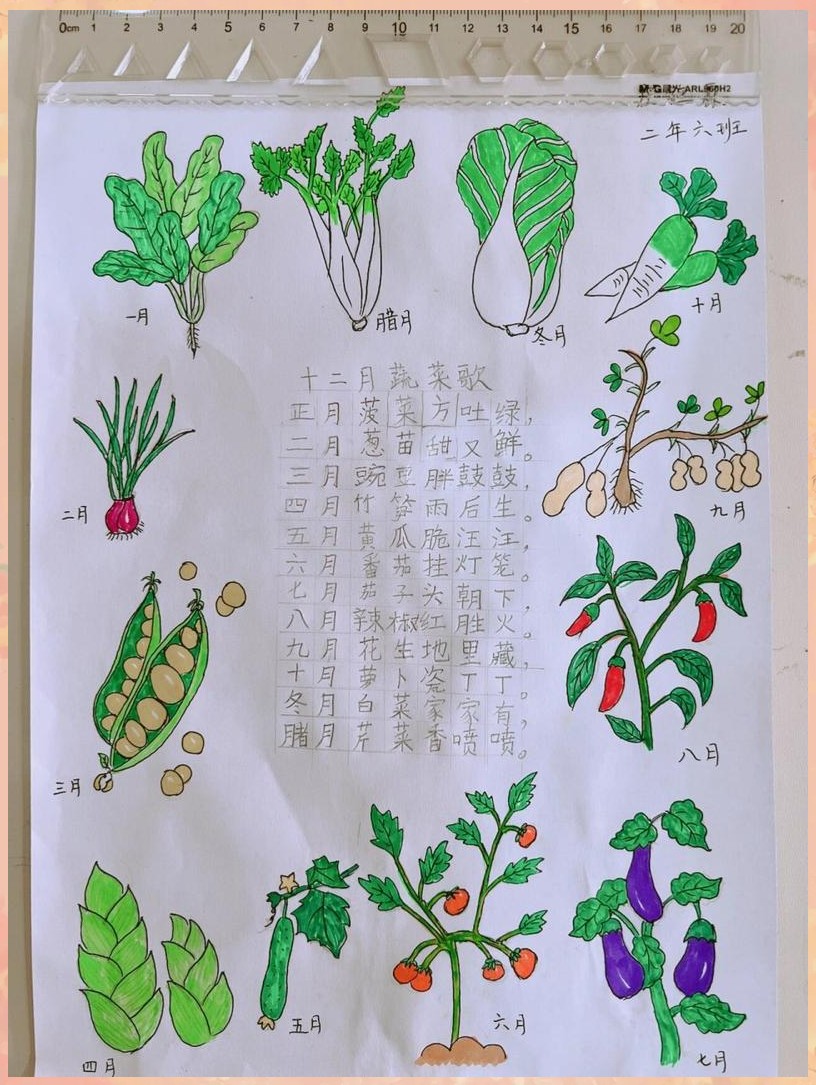 0cm 1 2 3 4 5 6 7 8 9 10 11 12 13 14 15 16 17 18 19 20
二年六班
一月
腊月
冬月
十月
十二月蔬菜歌
正月菠菜方吐绿，
二月葱苗甜又鲜。
三月豌豆胖鼓鼓，
四月竹笋雨后生。
五月黄瓜脆汪汪，
六月番茄挂灯笼。
七月茄子头朝下，
八月辣椒红胜火。
九月花生地里藏，
十月萝卜瓷丁丁。
冬月白菜家家有，
腊月芹菜香喷喷。
二月
九月
三月
八月
四月
五月
六月
七月